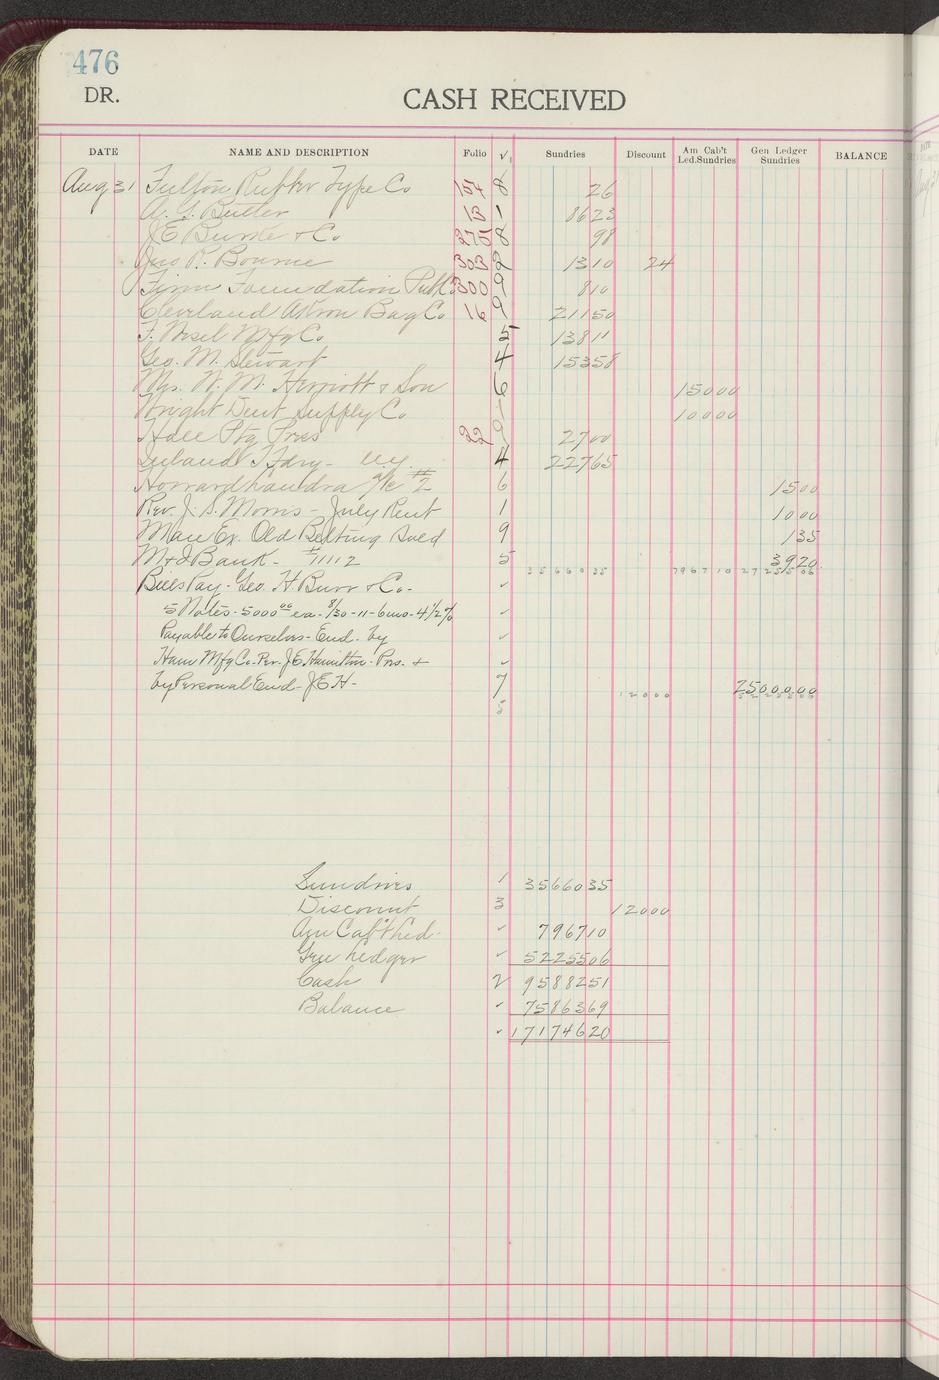 476
DR.
CASH RECEIVED
DATE NAME AND DESCRIPTION Folio √ Sundries Discount Am Cab't Led.Sundries Gen Ledger Sundries BALANCE
Aug 31 Fulton Rubber Type Co 154 8 26
A. G. Butler 13 1 8623
J E Burke & Co. 275 8 98
Jno R. Bourne 303 2 1310 24
Firm Foundation Pub Co 300 9 810
Cleveland Akron Bag Co 16 9 21150
F. Wesel Mfg Co 5 13811
Geo. M. Stewart 4 15358
Mrs. W. M. Herriott & Son 6 15000
Wright Dent Supply Co 1 10000
Hall Ptg Press 22 9 2700
Inland T Fdry - N.Y. 4 22765
a/c #2 6 1500
Rev. J. S. Morris - July Rent 1 1000
Man Ex. Old Belting Sold 9 135
M & I Bank - #1112 5 3920
3566035 796710 2725506
Bills Pay - Geo. H. Burr & Co. - ✓
5 Notes - 5000 00 ea - 8/30 - 11 - 6 mo - 4 1/2 % ✓
Payable to Ourselves - End. by ✓
Ham Mfg Co. - Per. J E Hamilton - Pres. + ✓
by Personal End - J E H - 7 2500000
5 12000
Sundries 1 3566035
Discount 3 12000
Am Cab't Led. ✓ 796710
Gen Ledger ✓ 5225506
Cash 2 9588251
Balance ✓ 7586369
✓ 17174620